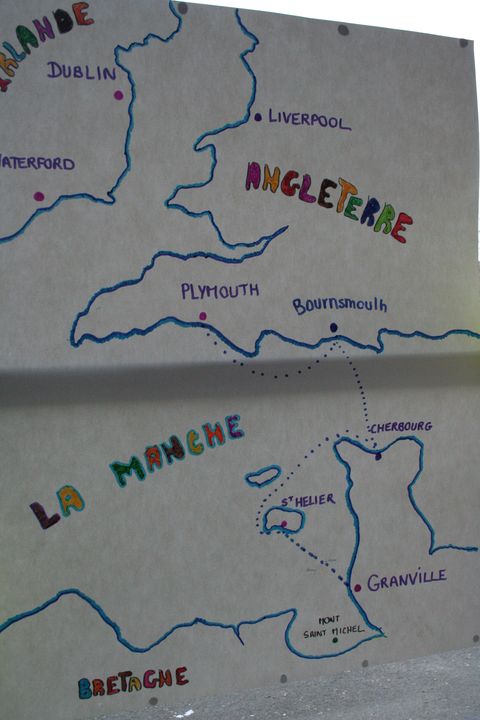 IRLANDE
DUBLIN
LIVERPOOL
WATERFORD
ANGLETERRE
PLYMOUTH
Bournsmouth
CHERBOURG
LA MANCHE
ST HELIER
GRANVILLE
MONT
SAINT MICHEL
BRETAGNE